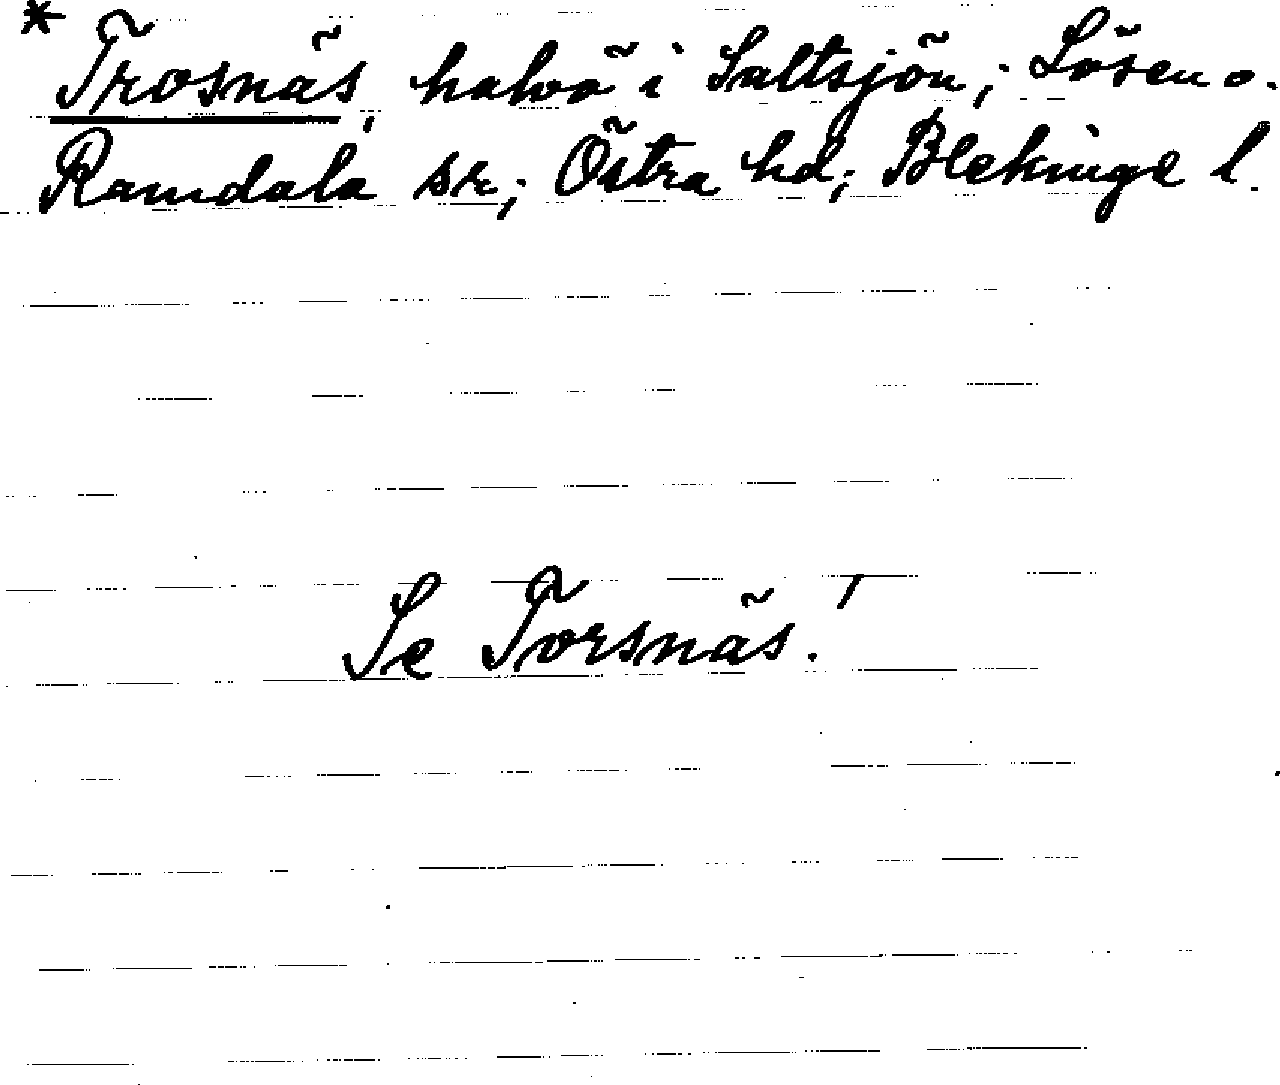 * Trosnäs, halvö i Saltsjön; Lösen o.
Ramdala sr; Östra hd; Blekinge l.
Se Torsnäs!